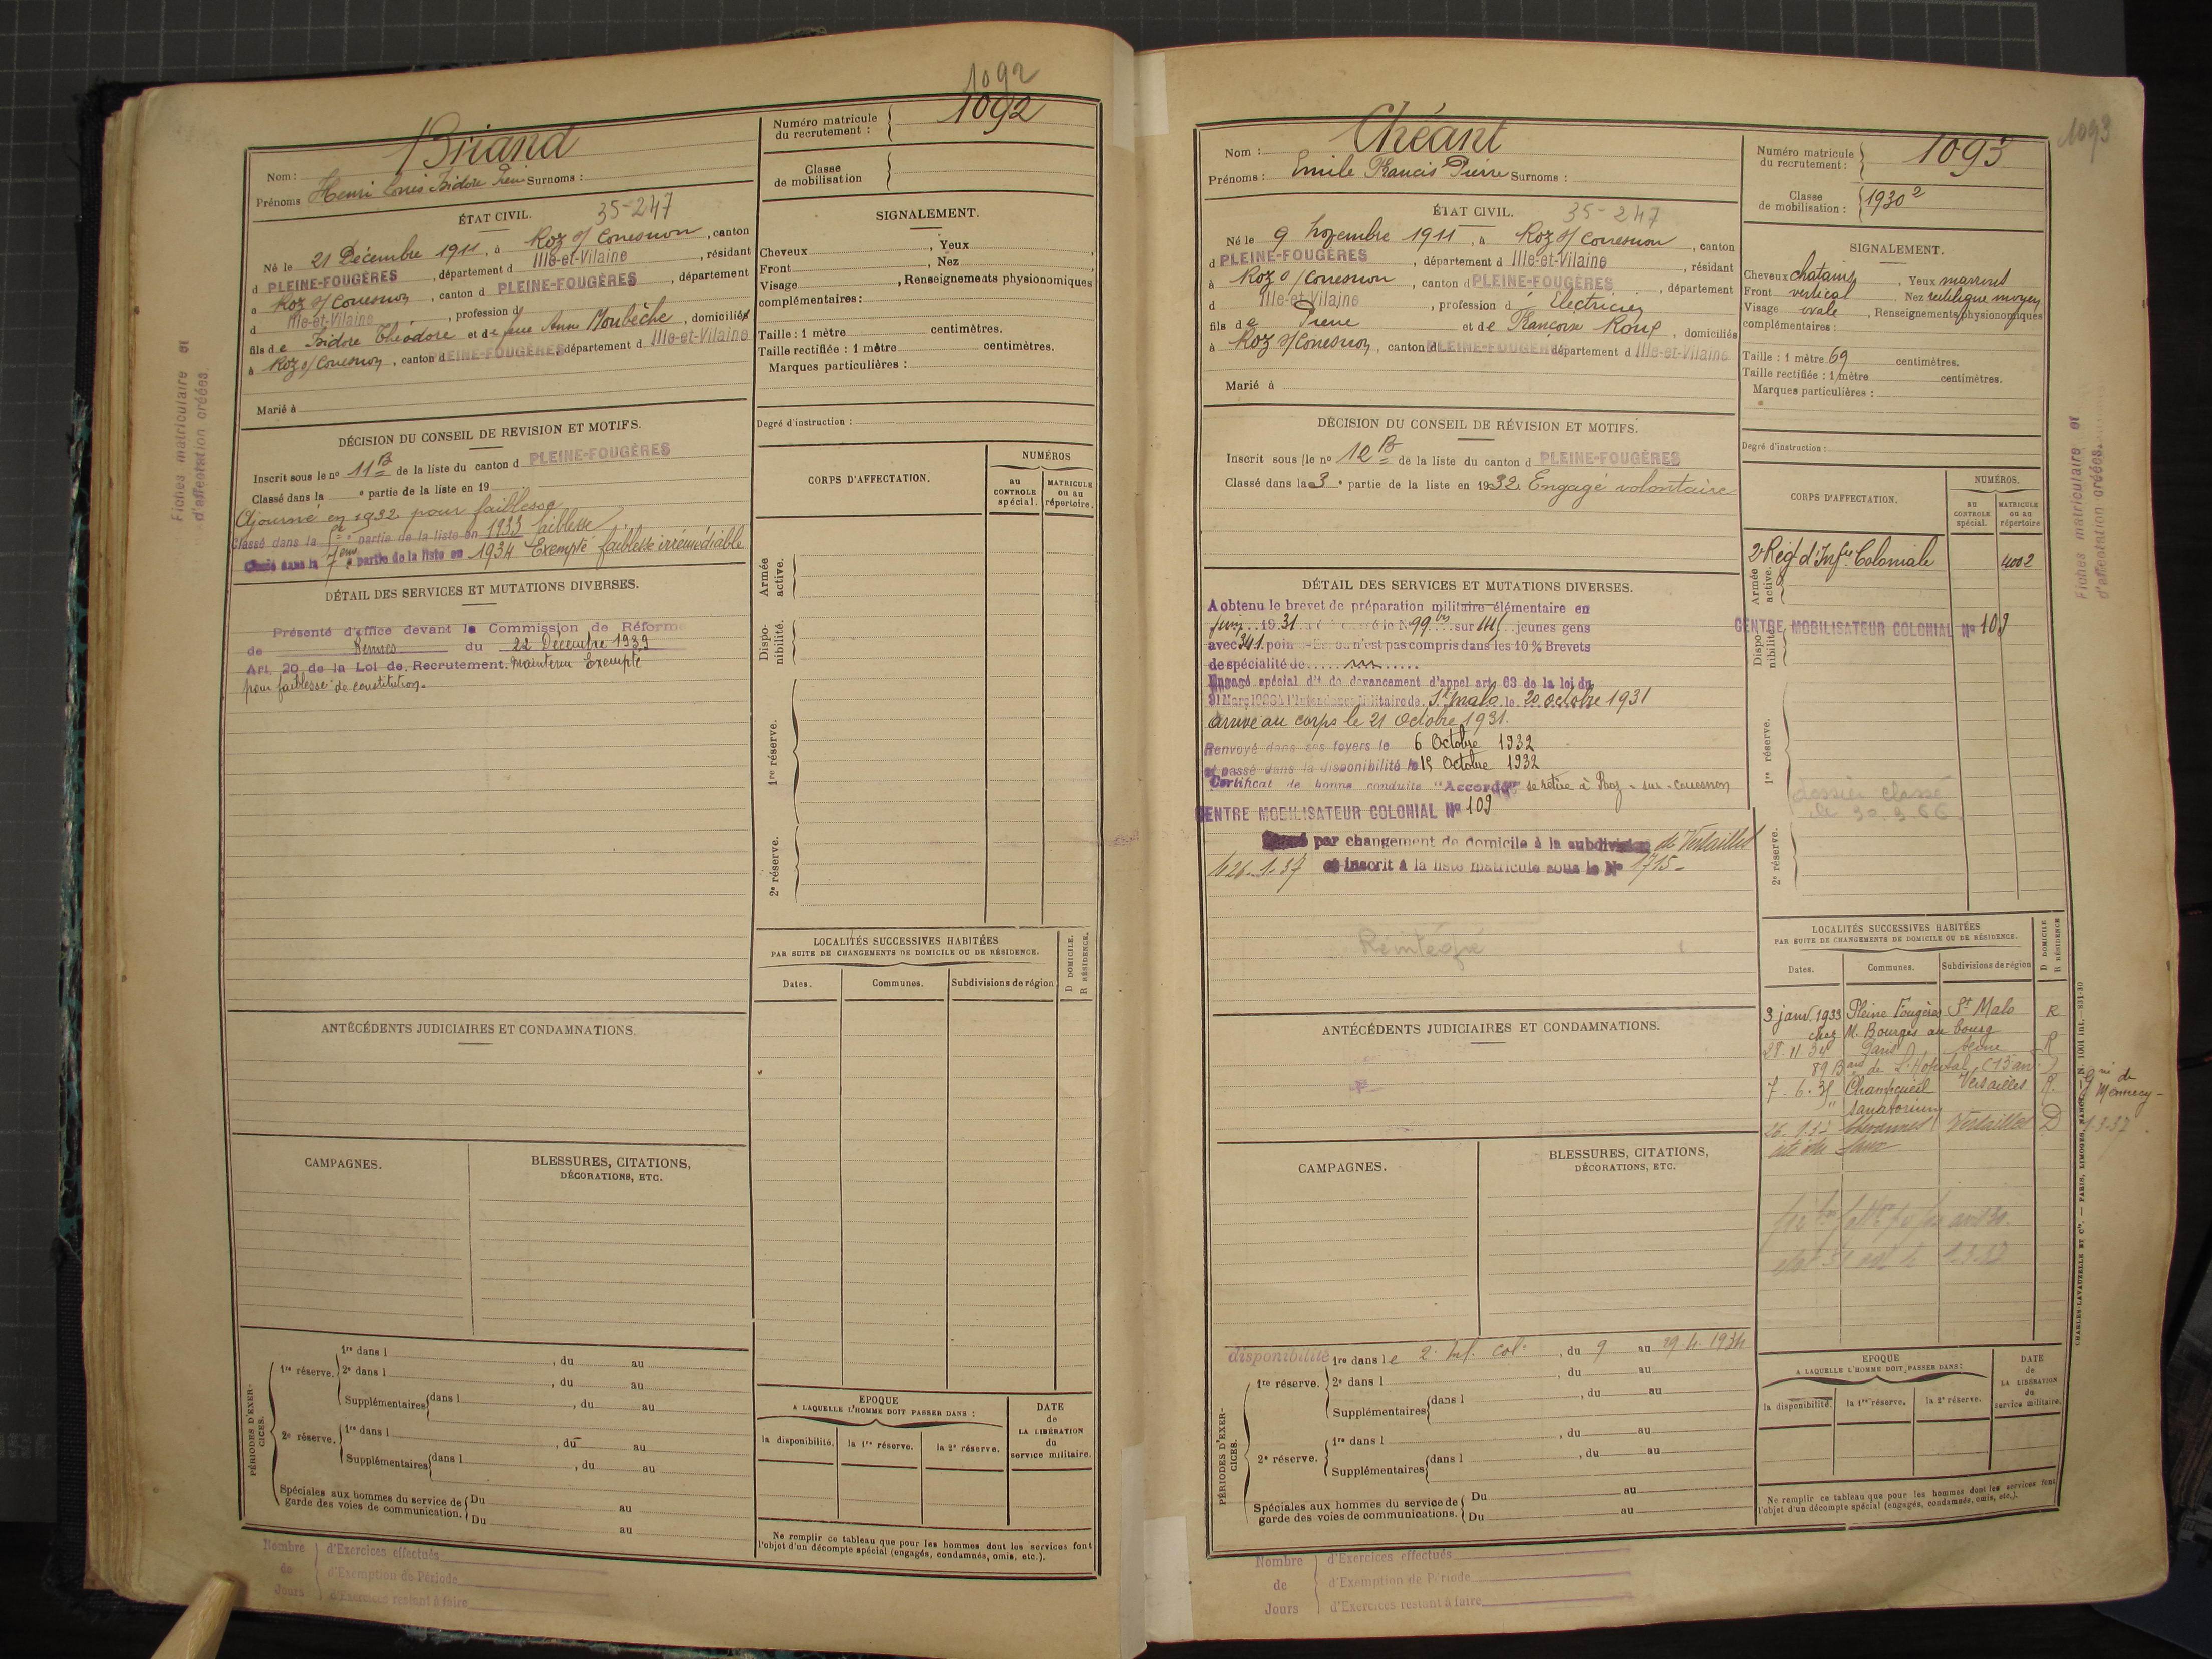 1092
Briand
Nom :
Prénoms Henri Louis Isidore Surnoms :
Numéro matricule du recrutement : 1092
Classe de mobilisation
ÉTAT CIVIL. 35-247
Né le 21 Décembre 1911, à Roz s/ Couesnon, canton
d PLEINE-FOUGÈRES, département d Ille-et-Vilaine, résidant
à Roz s/ Couesnon, canton d PLEINE-FOUGÈRES, département
d Ille-et-Vilaine, profession d
fils de Isidore Théodore et de feue Anne Monbèche, domiciliés
à Roz s/ Couesnon, canton d PLEINE-FOUGÈRES département d Ille-et-Vilaine
Marié à
SIGNALEMENT.
Cheveux , Yeux
Front , Nez
Visage , Renseignements physionomiques
complémentaires :
Taille : 1 mètre centimètres.
Taille rectifiée : 1 mètre centimètres.
Marques particulières :
Degré d'instruction :
DÉCISION DU CONSEIL DE REVISION ET MOTIFS.
Inscrit sous le nº 11 B de la liste du canton d PLEINE-FOUGÈRES
Classé dans la e partie de la liste en 19
Ajourné en 1932 pour faiblesse
Classé dans la partie de la liste en 1933 faiblesse
Classé dans la 7 partie de la liste en 1934 Exempté faiblesse irrémédiable
DÉTAIL DES SERVICES ET MUTATIONS DIVERSES.
Présenté d'office devant la Commission de Réforme
de Rennes du 22 Décembre 1939
Art. 20 de la Loi de Recrutement. Maintenu Exempté
pour faiblesse de constitution.
CORPS D'AFFECTATION.
NUMÉROS
au CONTROLE spécial.
MATRICULE ou au répertoire.
Armée active.
Disponibilité.
1re réserve.
2e réserve.
LOCALITÉS SUCCESSIVES HABITÉES
PAR SUITE DE CHANGEMENTS DE DOMICILE OU DE RÉSIDENCE.
D DOMICILE.
R RÉSIDENCE.
Dates. Communes. Subdivisions de région
ANTÉCÉDENTS JUDICIAIRES ET CONDAMNATIONS.
CAMPAGNES.
BLESSURES, CITATIONS,
DÉCORATIONS, ETC.
PÉRIODES D'EXERCICES.
1re réserve. 1re dans l , du au
2e dans l , du au
Supplémentaires dans l , du au
2e réserve. 1re dans l , du au
Supplémentaires dans l , du au
Spéciales aux hommes du service de garde des voies de communication. Du au
Du au
EPOQUE
A LAQUELLE L'HOMME DOIT PASSER DANS :
la disponibilité. la 1re réserve. la 2e réserve.
DATE de LA LIBÉRATION du service militaire.
Ne remplir ce tableau que pour les hommes dont les services font
l'objet d'un décompte spécial (engagés, condamnés, omis, etc.).
Nombre de Jours
d'Exercices effectués
d'Exemption de Période
d'Exercices restant à faire
Fiches matriculaire et
d'affectation créées
1093
Nom : Chéant
Prénoms : Emile Francis Pierre Surnoms :
Numéro matricule du recrutement : 1093
Classe de mobilisation : 1930²
ÉTAT CIVIL. 35-247
Né le 9 Novembre 1911, à Roz s/ Couesnon, canton
d PLEINE-FOUGÈRES, département d Ille-et-Vilaine, résidant
à Roz s/ Couesnon, canton d PLEINE-FOUGÈRES, département
d Ille-et-Vilaine, profession d Electricien
fils de Pierre et de Françoise Roux, domiciliés
à Roz s/ Couesnon, canton d PLEINE-FOUGÈRES département d Ille-et-Vilaine
Marié à
SIGNALEMENT.
Cheveux chatains, Yeux marrons
Front vertical, Nez rectiligne moyen
Visage ovale, Renseignements physionomiques
complémentaires :
Taille : 1 mètre 69 centimètres.
Taille rectifiée : 1 mètre centimètres.
Marques particulières :
Degré d'instruction :
DÉCISION DU CONSEIL DE RÉVISION ET MOTIFS.
Inscrit sous le nº 12 B de la liste du canton d PLEINE-FOUGÈRES
Classé dans la 3e partie de la liste en 1932. Engagé volontaire
DÉTAIL DES SERVICES ET MUTATIONS DIVERSES.
A obtenu le brevet de préparation militaire élémentaire en
1931 a été classé le Nº 99 bis sur jeunes gens
avec 341 poin n'est pas compris dans les 10 % Brevets
de spécialité de
Engagé spécial dit de devancement d'appel art. 63 de la loi du
31 Mars 1928 à l'Intendance Militaire de St Malo le 20 octobre 1931
arrivé au corps le 21 Octobre 1931.
Renvoyé dans ses foyers le 6 Octobre 1932
et passé dans la disponibilité le 15 Octobre 1932
Certificat de bonne conduite "Accordé" se retire à Roz-sur-Couesnon
CENTRE MOBILISATEUR COLONIAL Nº 109
par changement de domicile à la subdivision de Versailles
le 26.1.37 et inscrit à la liste matricule sous le Nº 1715
Réintégré
CORPS D'AFFECTATION.
NUMÉROS.
au CONTROLE spécial.
MATRICULE ou au répertoire
Armée active.
2e Régt d'Infie Coloniale 4002
CENTRE MOBILISATEUR COLONIAL Nº 109
Disponibilité.
1re réserve.
dossier classé
le 30.9.66
2e réserve.
LOCALITÉS SUCCESSIVES HABITÉES
PAR SUITE DE CHANGEMENTS DE DOMICILE OU DE RÉSIDENCE.
D DOMICILE
R RÉSIDENCE
Dates. Communes. Subdivisions de région
3 janv. 1933 Pleine Fougères St Malo R
chez M. Bourges au bourg
28.11 34 Paris Seine R
89 Bard de L'Hopital (13e arr)
7.6.35 Champcueil Versailles R.
sanatorium
Grie de Mennecy
26.1.37 Chevannes Versailles D 1.3.37
ANTÉCÉDENTS JUDICIAIRES ET CONDAMNATIONS.
CAMPAGNES.
BLESSURES, CITATIONS,
DÉCORATIONS, ETC.
PÉRIODES D'EXERCICES.
disponibilité 1re dans le 2e Inf. Col., du 9 au 29.4.1934
1re réserve. 2e dans l , du au
Supplémentaires dans l , du au
2e réserve. 1re dans l , du au
Supplémentaires dans l , du au
Spéciales aux hommes du service de garde des voies de communications. Du au
Du au
EPOQUE
A LAQUELLE L'HOMME DOIT PASSER DANS :
la disponibilité. la 1re réserve. la 2e réserve.
DATE de LA LIBÉRATION du service militaire.
Ne remplir ce tableau que pour les hommes dont les services font
l'objet d'un décompte spécial (engagés, condamnés, omis, etc.).
Nombre de Jours
d'Exercices effectués
d'Exemption de Période
d'Exercices restant à faire
Fiches matriculaire et
d'affectation créées
CHARLES-LAVAUZELLE ET Cie. — PARIS, LIMOGES, NANCY. — N. 1001 int.—831-30